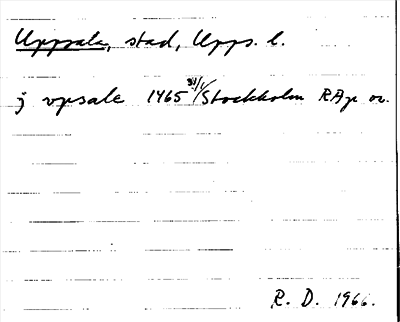 Uppsala, stad, Upps. l.
j vpsale 1465 31/1 Stockholm RAp or.
R. D. 1966.